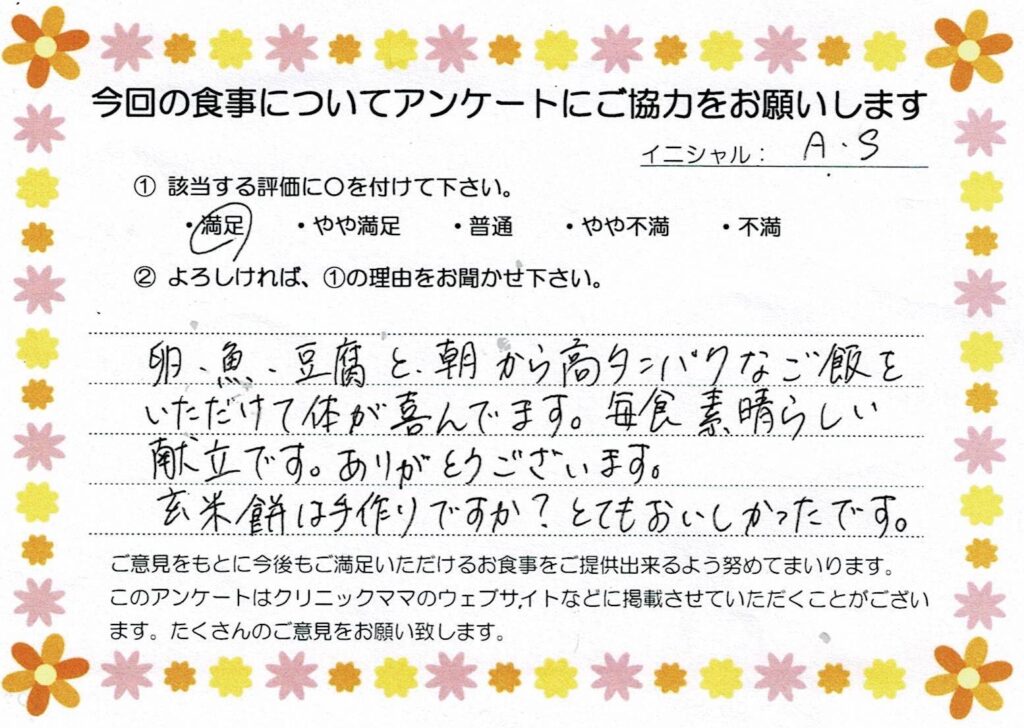 今回の食事についてアンケートにご協力をお願いします
イニシャル： A・S
① 該当する評価に〇を付けて下さい。
・満足 ・やや満足 ・普通 ・やや不満 ・不満
② よろしければ、①の理由をお聞かせ下さい。
卵、魚、豆腐と、朝から高タンパクなご飯を
いただけて体が喜んでます。毎食素晴らしい
献立です。ありがとうございます。
玄米餅は手作りですか？とてもおいしかったです。
ご意見をもとに今後もご満足いただけるお食事をご提供出来るよう努めてまいります。
このアンケートはクリニックママのウェブサイトなどに掲載させていただくことがござい
ます。たくさんのご意見をお願い致します。